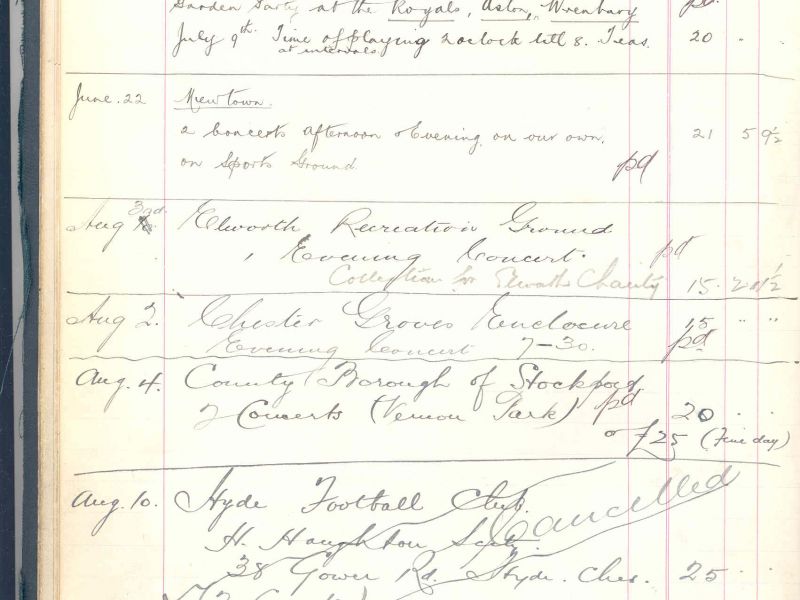 Garden Party at the Royals, Aston, Wrenbury pd
July 9th Time of playing 2 oclock till 8. Teas 20 " "
at intervals
June. 22 Newtown.
2 Concerts afternoon & Evening on our own. 21 5 9½
on Sports Ground pd
Aug 3rd. Elworth Recreation Ground
" Evening Concert. pd
Collection for Elworth Charity 15. 2 ½
Aug 2. Chester Groves Enclosure 15 " "
Evening Concert 7-30. pd
Aug. 4. County Borough of Stockport
2 Concerts (Vernon Park) pd 20 . .
or £25 (Fine day)
Aug. 10. Hyde Football Club. Cancelled
H. Haughton Secty.
38 Gower Rd. Hyde. Ches. 25 .